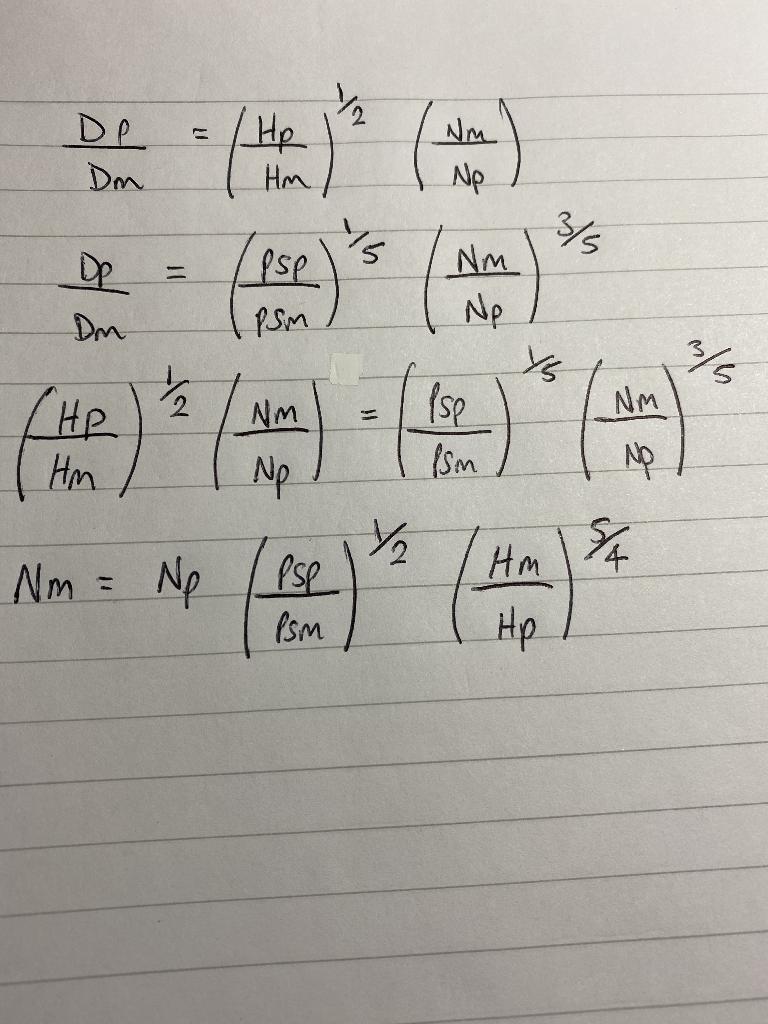 Dp/Dm = (Hp/Hm)^1/2 (Nm/Np)
Dp/Dm = (Psp/Psm)^1/5 (Nm/Np)^3/5
(Hp/Hm)^1/2 (Nm/Np) = (Psp/Psm)^1/5 (Nm/Np)^3/5
Nm = Np (Psp/Psm)^1/2 (Hm/Hp)^5/4